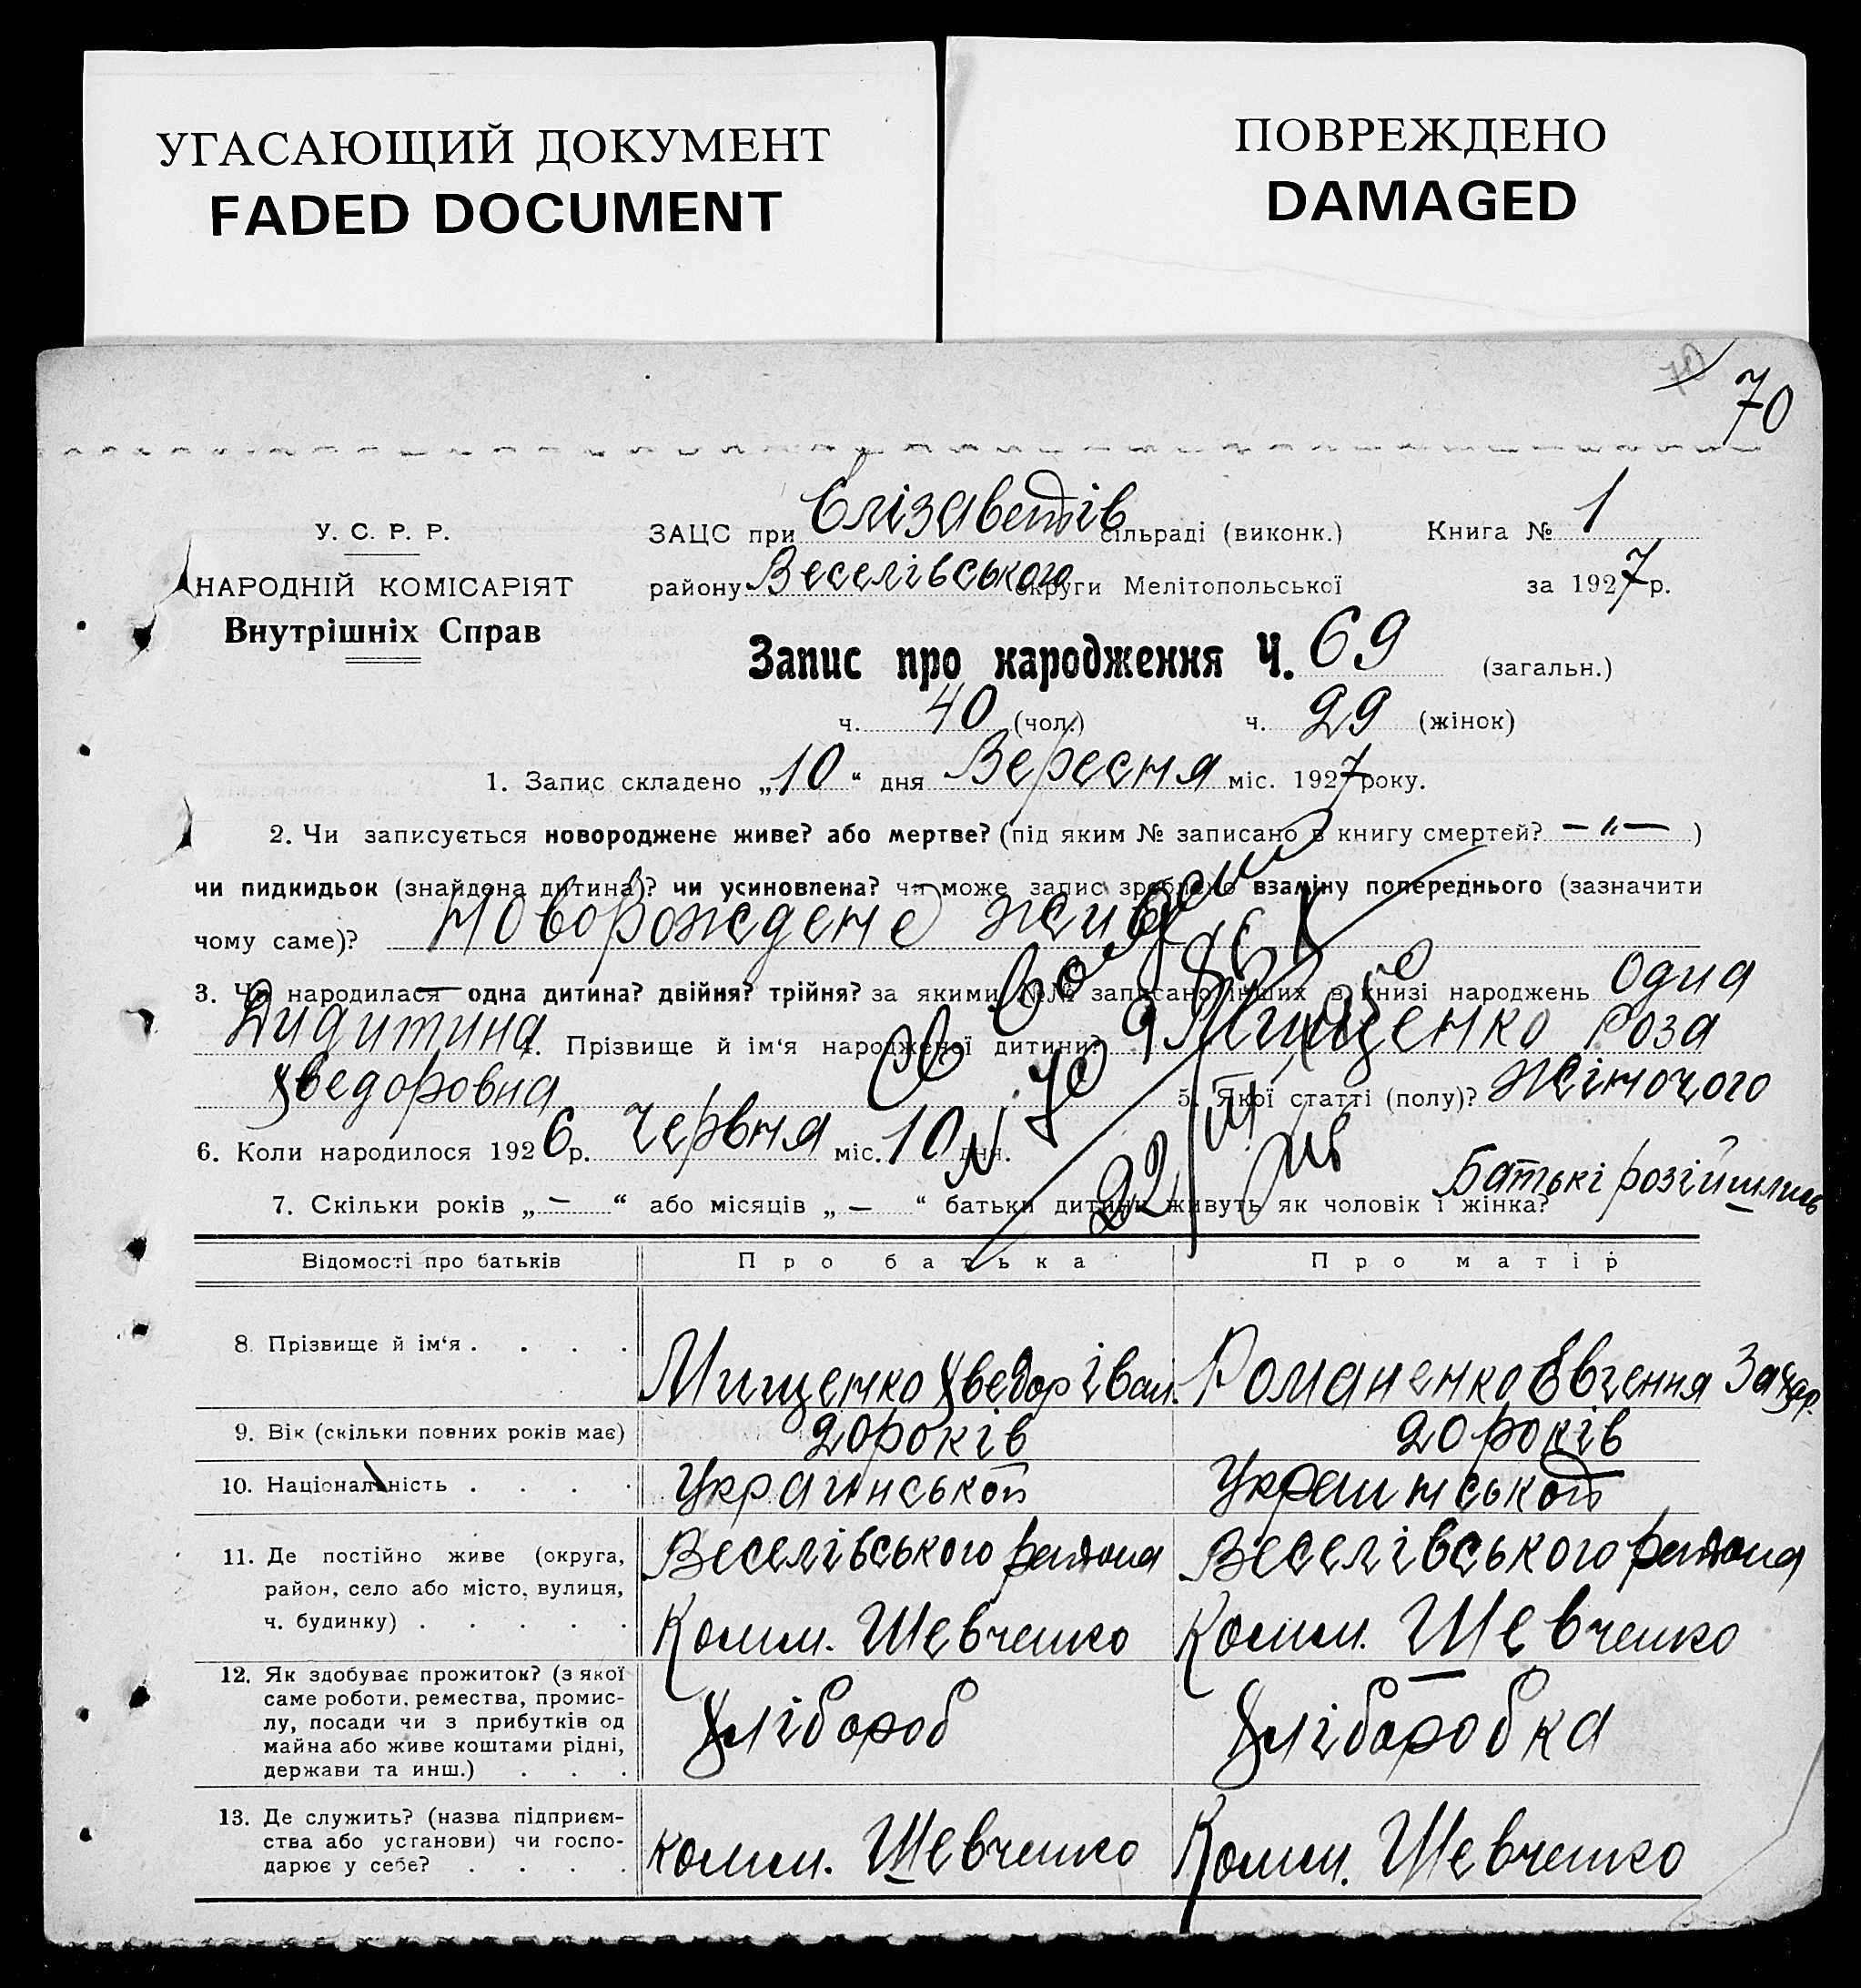 УГАСАЮЩИЙ ДОКУМЕНТ
FADED DOCUMENT
ПОВРЕЖДЕНО
DAMAGED
70
70
У. С. Р. Р.
НАРОДНІЙ КОМІСАРІЯТ
Внутрішніх Справ
ЗАЦС при Єлізаветів сільраді (виконк.) Книга № 1
району Веселівського округи Мелітопольської за 1927 р.
Запис про народження Ч. 69 (загальн.)
ч. 40 (чол.) ч. 29 (жінок)
1. Запис складено „10“ дня Вересня міс. 1927 року.
2. Чи записується новороджене живе? або мертве? (під яким № записано в книгу смертей? — „ — )
чи пидкидьок (знайдена дитина)? чи усиновлена? чи може запис зроблено взаміну попереднього (зазначити
чому саме)? Новорождене живе
3. Чи народилася одна дитина? двійня? трійня? за якими №№ записано інших в книзі народжень Одна
Дидитина 4. Прізвище й ім‘я народженої дитини? Мищенко Роза
Хведоровна 5. Якої статті (полу)? Жіночого
6. Коли народилося 1926 р. червня міс. 10 дня.
7. Скільки років „—“ або місяців „—“ батьки дитини живуть як чоловік і жінка? Батькі розійшлись
Св
N 70
22/III
Відомості про батьків Про батька Про матір
8. Прізвище й ім‘я . . . . Мищенко Хведор Іван. Романенко Евгення Захар.
9. Вік (скільки повних років має) 20 років 20 років
10. Національність . . . . Украинськой Украинськой
11. Де постійно живе (округа, район, село або місто, вулиця, ч. будинку) . . . . .
Веселівського района Веселівського района
Комм. Шевченко Комм. Шевченко
12. Як здобуває прожиток? (з якої
саме роботи, ремества, промис-
лу, посади чи з прибутків од
майна або живе коштами рідні,
держави та инш.) . . .
Хлібороб Хліборобка
13. Де служить? (назва підприєм-
ства або установи) чи госпо-
дарює у себе? . . . .
комм. Шевченко Комм. Шевченко